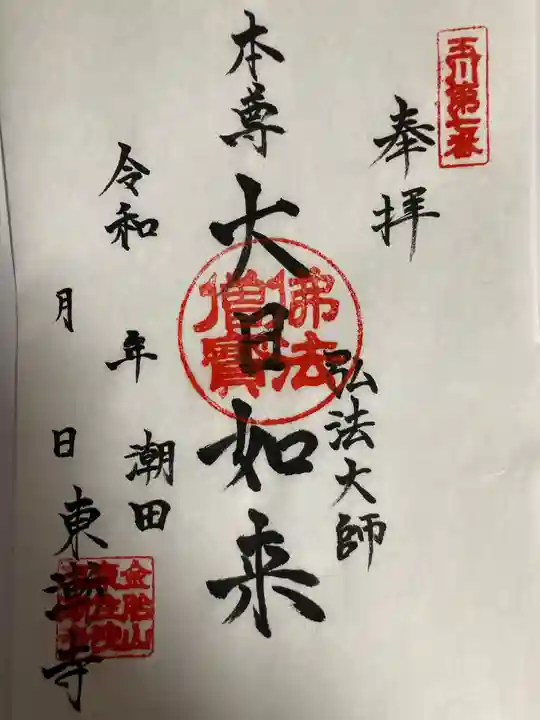 玉川第七番
奉拝
弘法大師
本尊 大日如来
佛法僧寳
令和 年 月 日
潮田
東漸寺
金胎山